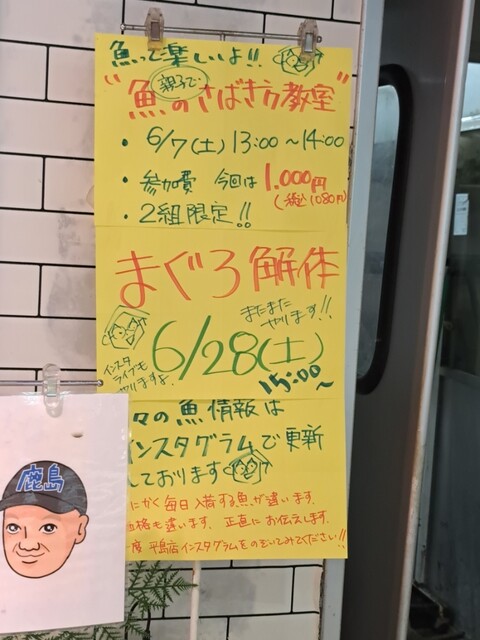 魚って楽しいよ!!
親子で
"魚のさばき方教室"
・6/7(土)13:00〜14:00
・参加費 今回は1.000円
(税込1080円)
・2組限定!!
まぐろ解体
またまた
やります!!
6/28(土)
15:00〜
インスタ
ライブも
やりますよ
々の魚情報は
インスタグラムで更新
しております
にかく毎日入荷する魚が違います。
価格も違います。正直にお伝えします。
度 平島店インスタグラムをのぞいてみてください!!
鹿島